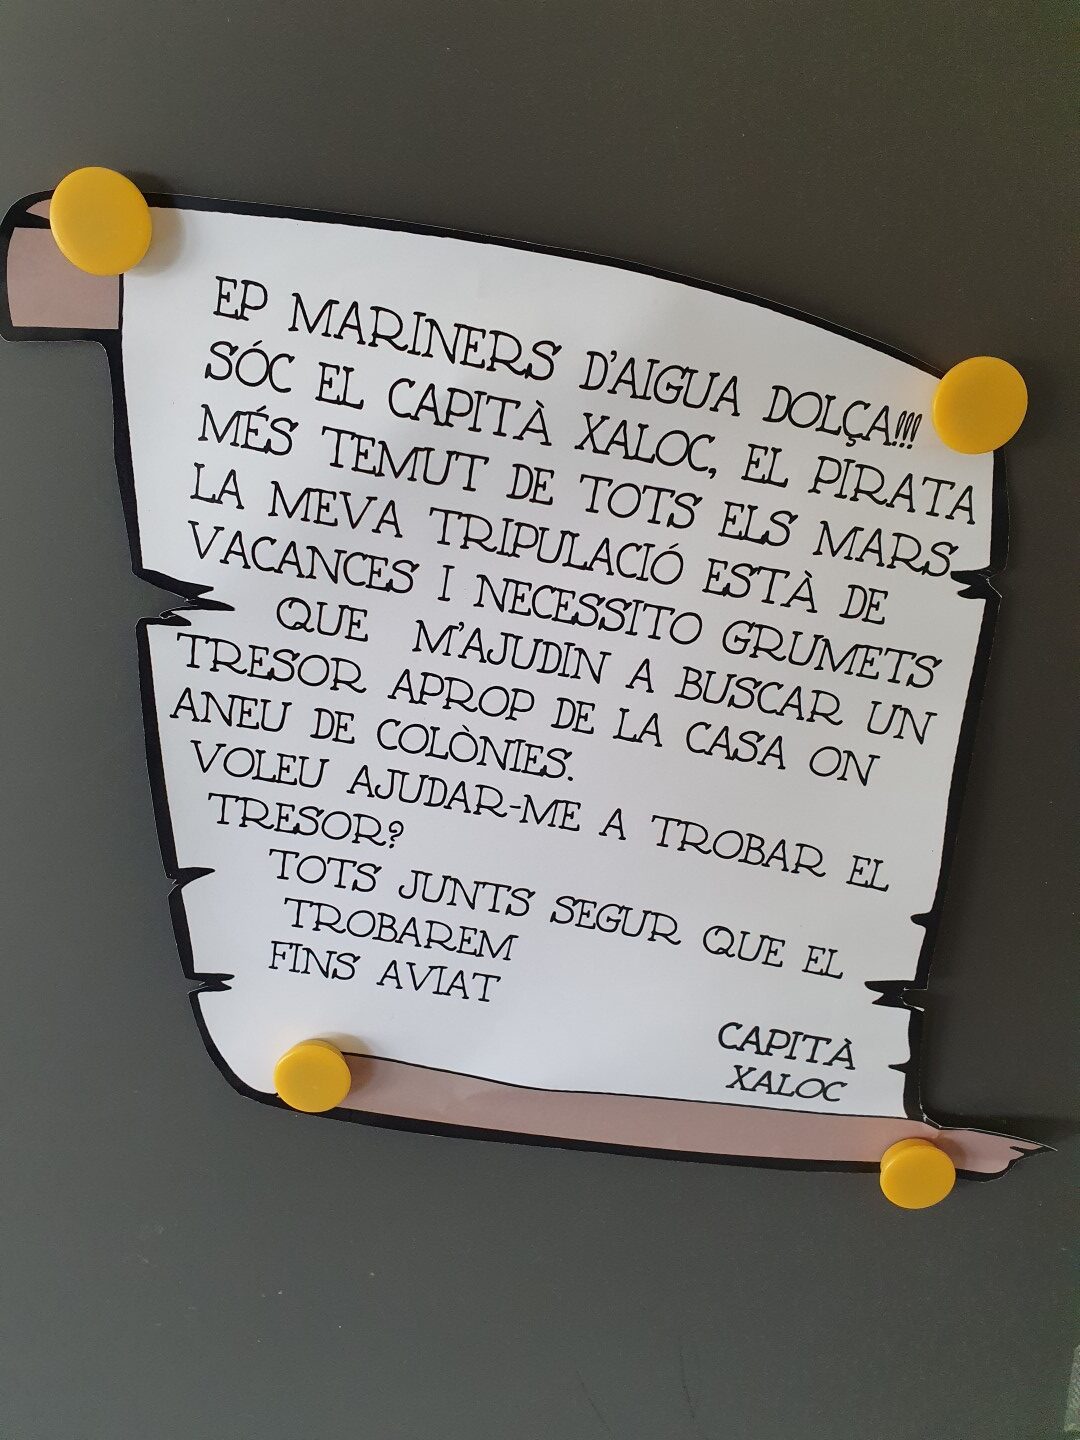 EP MARINERS D'AIGUA DOLÇA!!!
SÓC EL CAPITÀ XALOC, EL PIRATA
MÉS TEMUT DE TOTS ELS MARS.
LA MEVA TRIPULACIÓ ESTÀ DE
VACANCES I NECESSITO GRUMETS
QUE M'AJUDIN A BUSCAR UN
TRESOR APROP DE LA CASA ON
ANEU DE COLÒNIES.
VOLEU AJUDAR-ME A TROBAR EL
TRESOR?
TOTS JUNTS SEGUR QUE EL
TROBAREM
FINS AVIAT
CAPITÀ
XALOC